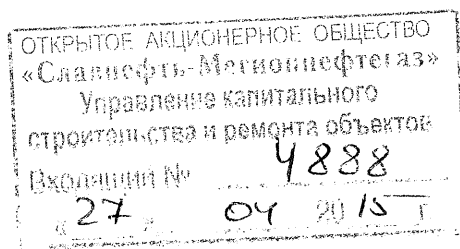 ОТКРЫТОЕ АКЦИОНЕРНОЕ ОБЩЕСТВО
«Славнефть-Мегионнефтегаз»
Управление капитального
строительства и ремонта объектов
Входящий № 4888
« 27 » 04 2015 г